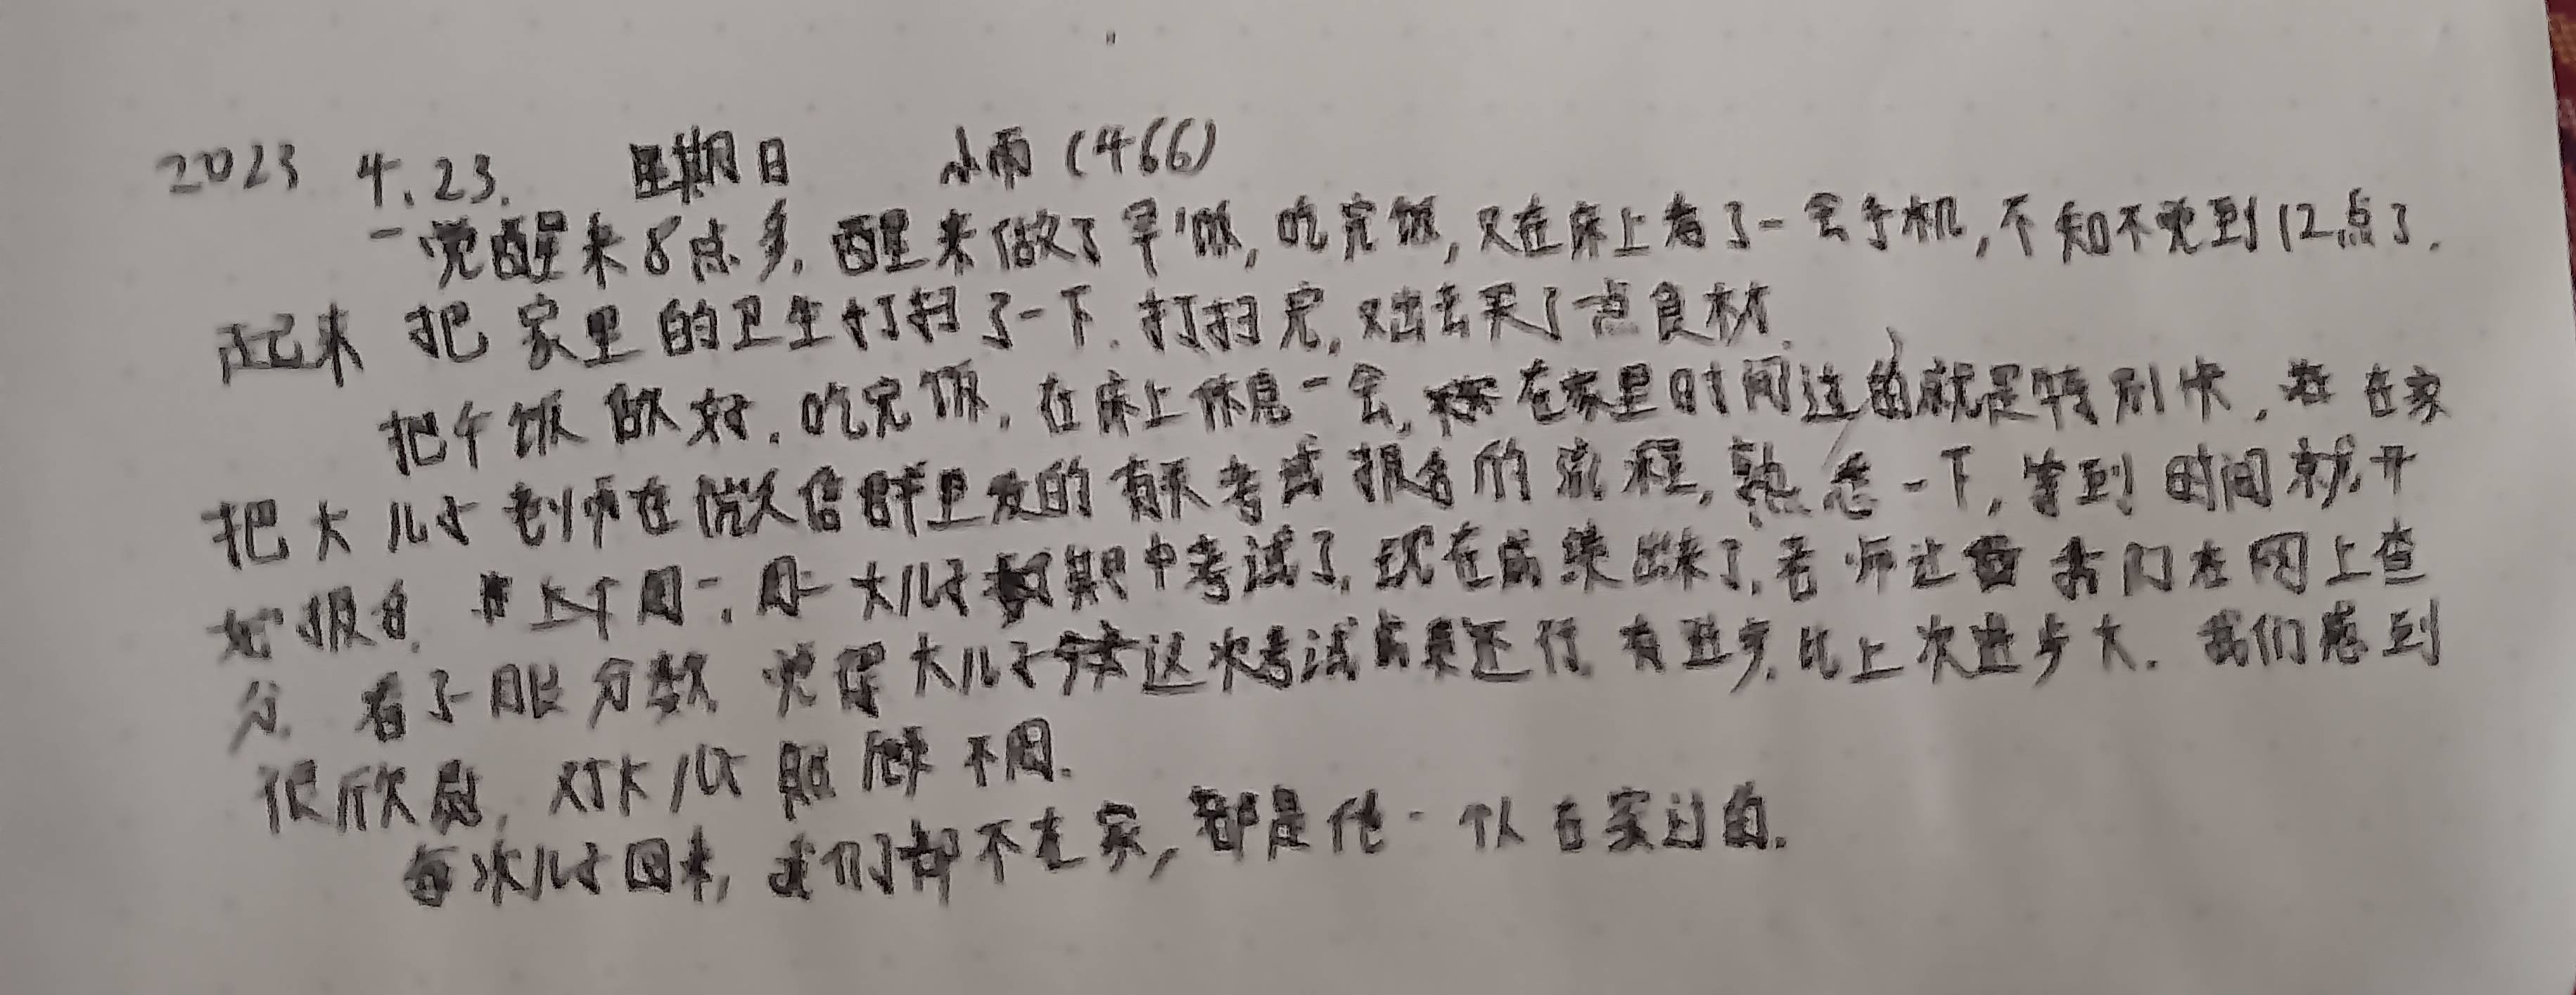 2023 4.23. 星期日 小雨(466)
一觉醒来8点多,醒来做了早饭,吃完饭,又在床上看了一会手机,不知不觉到12点了.
起来把家里的卫生打扫了一下.打扫完,又出去买了点食材.
把午饭做好.吃完饭,在床上休息一会,在家里时间过的就是特别快,在家
把大儿子老师在微信群里发的有关考试报名的流程,熟悉一下,等到时间就开
始报名.上个周一,周二大儿子期中考试了,现在成绩出来了,老师让我们在网上查
分.看了一眼分数.觉得大儿子这次考试结果还行.有进步,比上次进步大.我们感到
很欣慰,对大儿子刮目不同.
每次儿子回来,我们都不在家,都是他一个人在家过的.